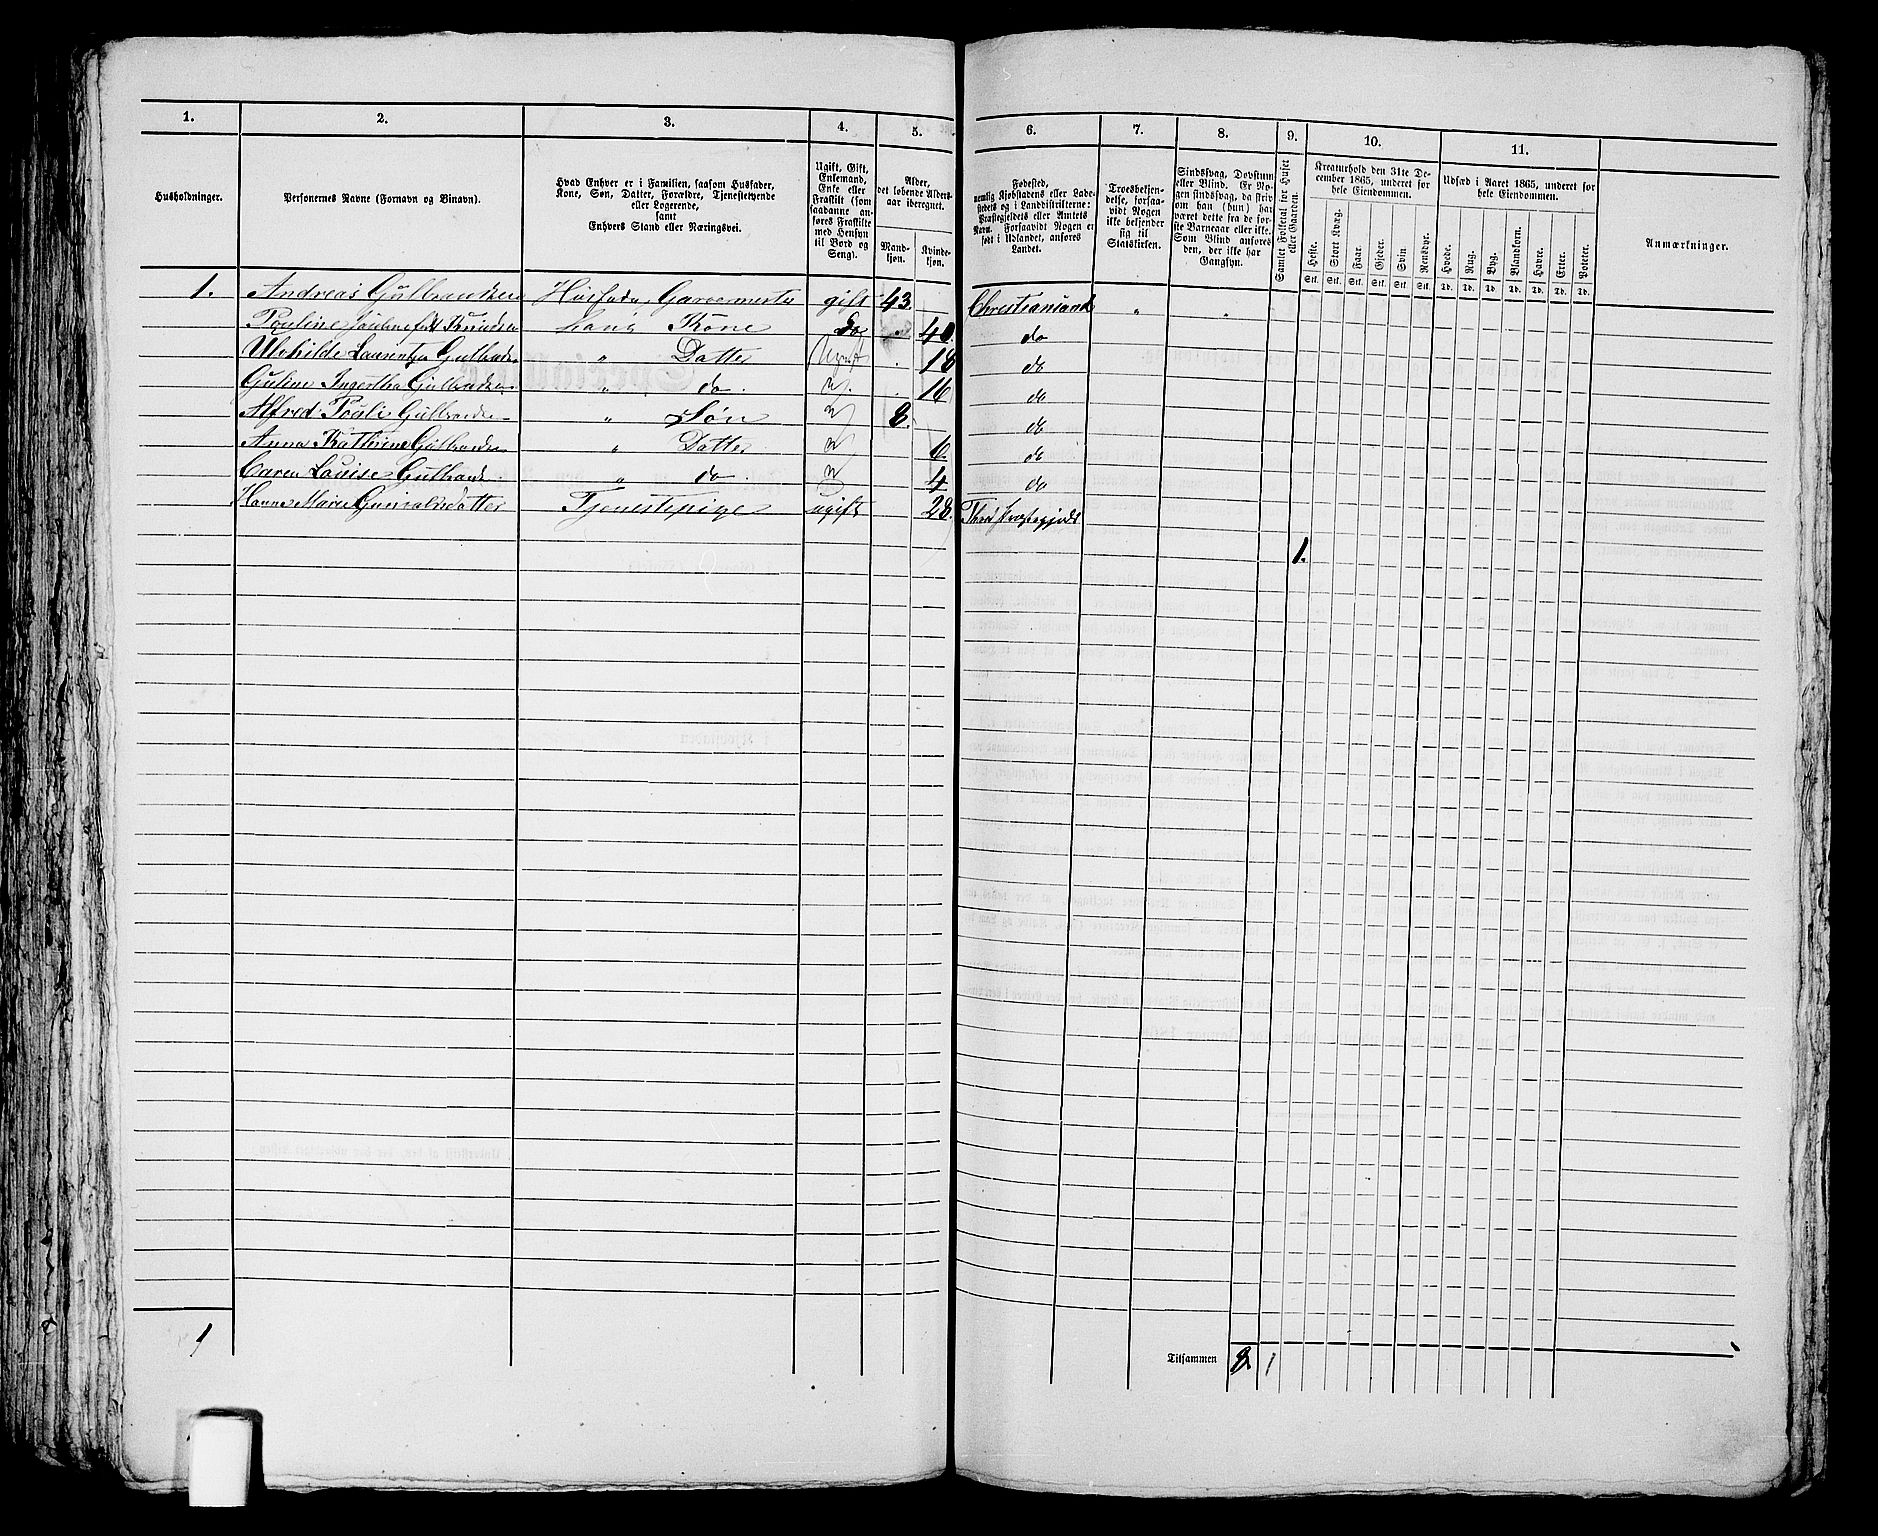 1. 2. 3. 4. 5. 6. 7. 8. 9. 10. 11.
Husholdninger.
Personernes Navne (Fornavn og Binavn).
Hvad Enhver er i Familien, saasom Husfader,
Kone, Søn, Datter, Forældre, Tjenestetyende
eller Logerende,
samt
Enhvers Stand eller Næringsvei.
Ugift, Gift,
Enkemand,
Enke eller
Fraskilt (som
saadanne an-
føres Fraskilte
med Hensyn
til Bord og
Seng).
Alder,
det løbende Alders-
aar iberegnet.
Mand-
kjøn.
Kvinde-
kjøn.
Fødested,
nemlig Kjøbstadens eller Lade-
stedets og i Landdistrikterne:
Præstegjeldets eller Amtets
Navn. Forsaavidt Nogen er
født i Udlandet, anføres
Landet.
Troesbekjen-
delse, forsaa-
vidt Nogen
ikke bekjender
sig til
Statskirken.
Sindssvag, Døvstum
eller Blind. Er No-
gen sindssvag, da skriv
om han (hun) har
været dette fra de før-
ste Barneaar eller ikke.
Som Blind anføres
den, der ikke har
Gangsyn.
Samlet Folketal for Huset
eller Gaarden.
Kreaturhold den 31te De-
cember 1865, underet for
hele Eiendommen.
Heste. Stort Kvæg. Faar. Gjeder. Svin Rensdyr.
Stk. Stk. Stk. Stk. Stk. Stk.
Udsæd i Aaret 1865, underet for
hele Eiendommen.
Hvede. Rug. Byg. Blandkorn. Havre. Erter. Poteter.
Td. Td. Td. Td. Td. Td. Td.
Anmærkninger.
1. Andreas Gulbrandsen Husfader, Garvermester gift 43 Christiansand " "
Pouline født Knudsen hans Kone Do 40. do
Laurentza Gulbrandsen " Datter Ugift 18 do
Guline Gulbrandsen " do. 16 do
Alfred Pauli Gulbrandsen " Søn 8. do
Anna Kathrine Gulbrandsen " Datter 6. do
Caren Louise Gulbrands. " do. 4 do
Hanne Marie Tjenestepige ugift 28. Præstegjeld
1.
1
Tilsammen 8. 1